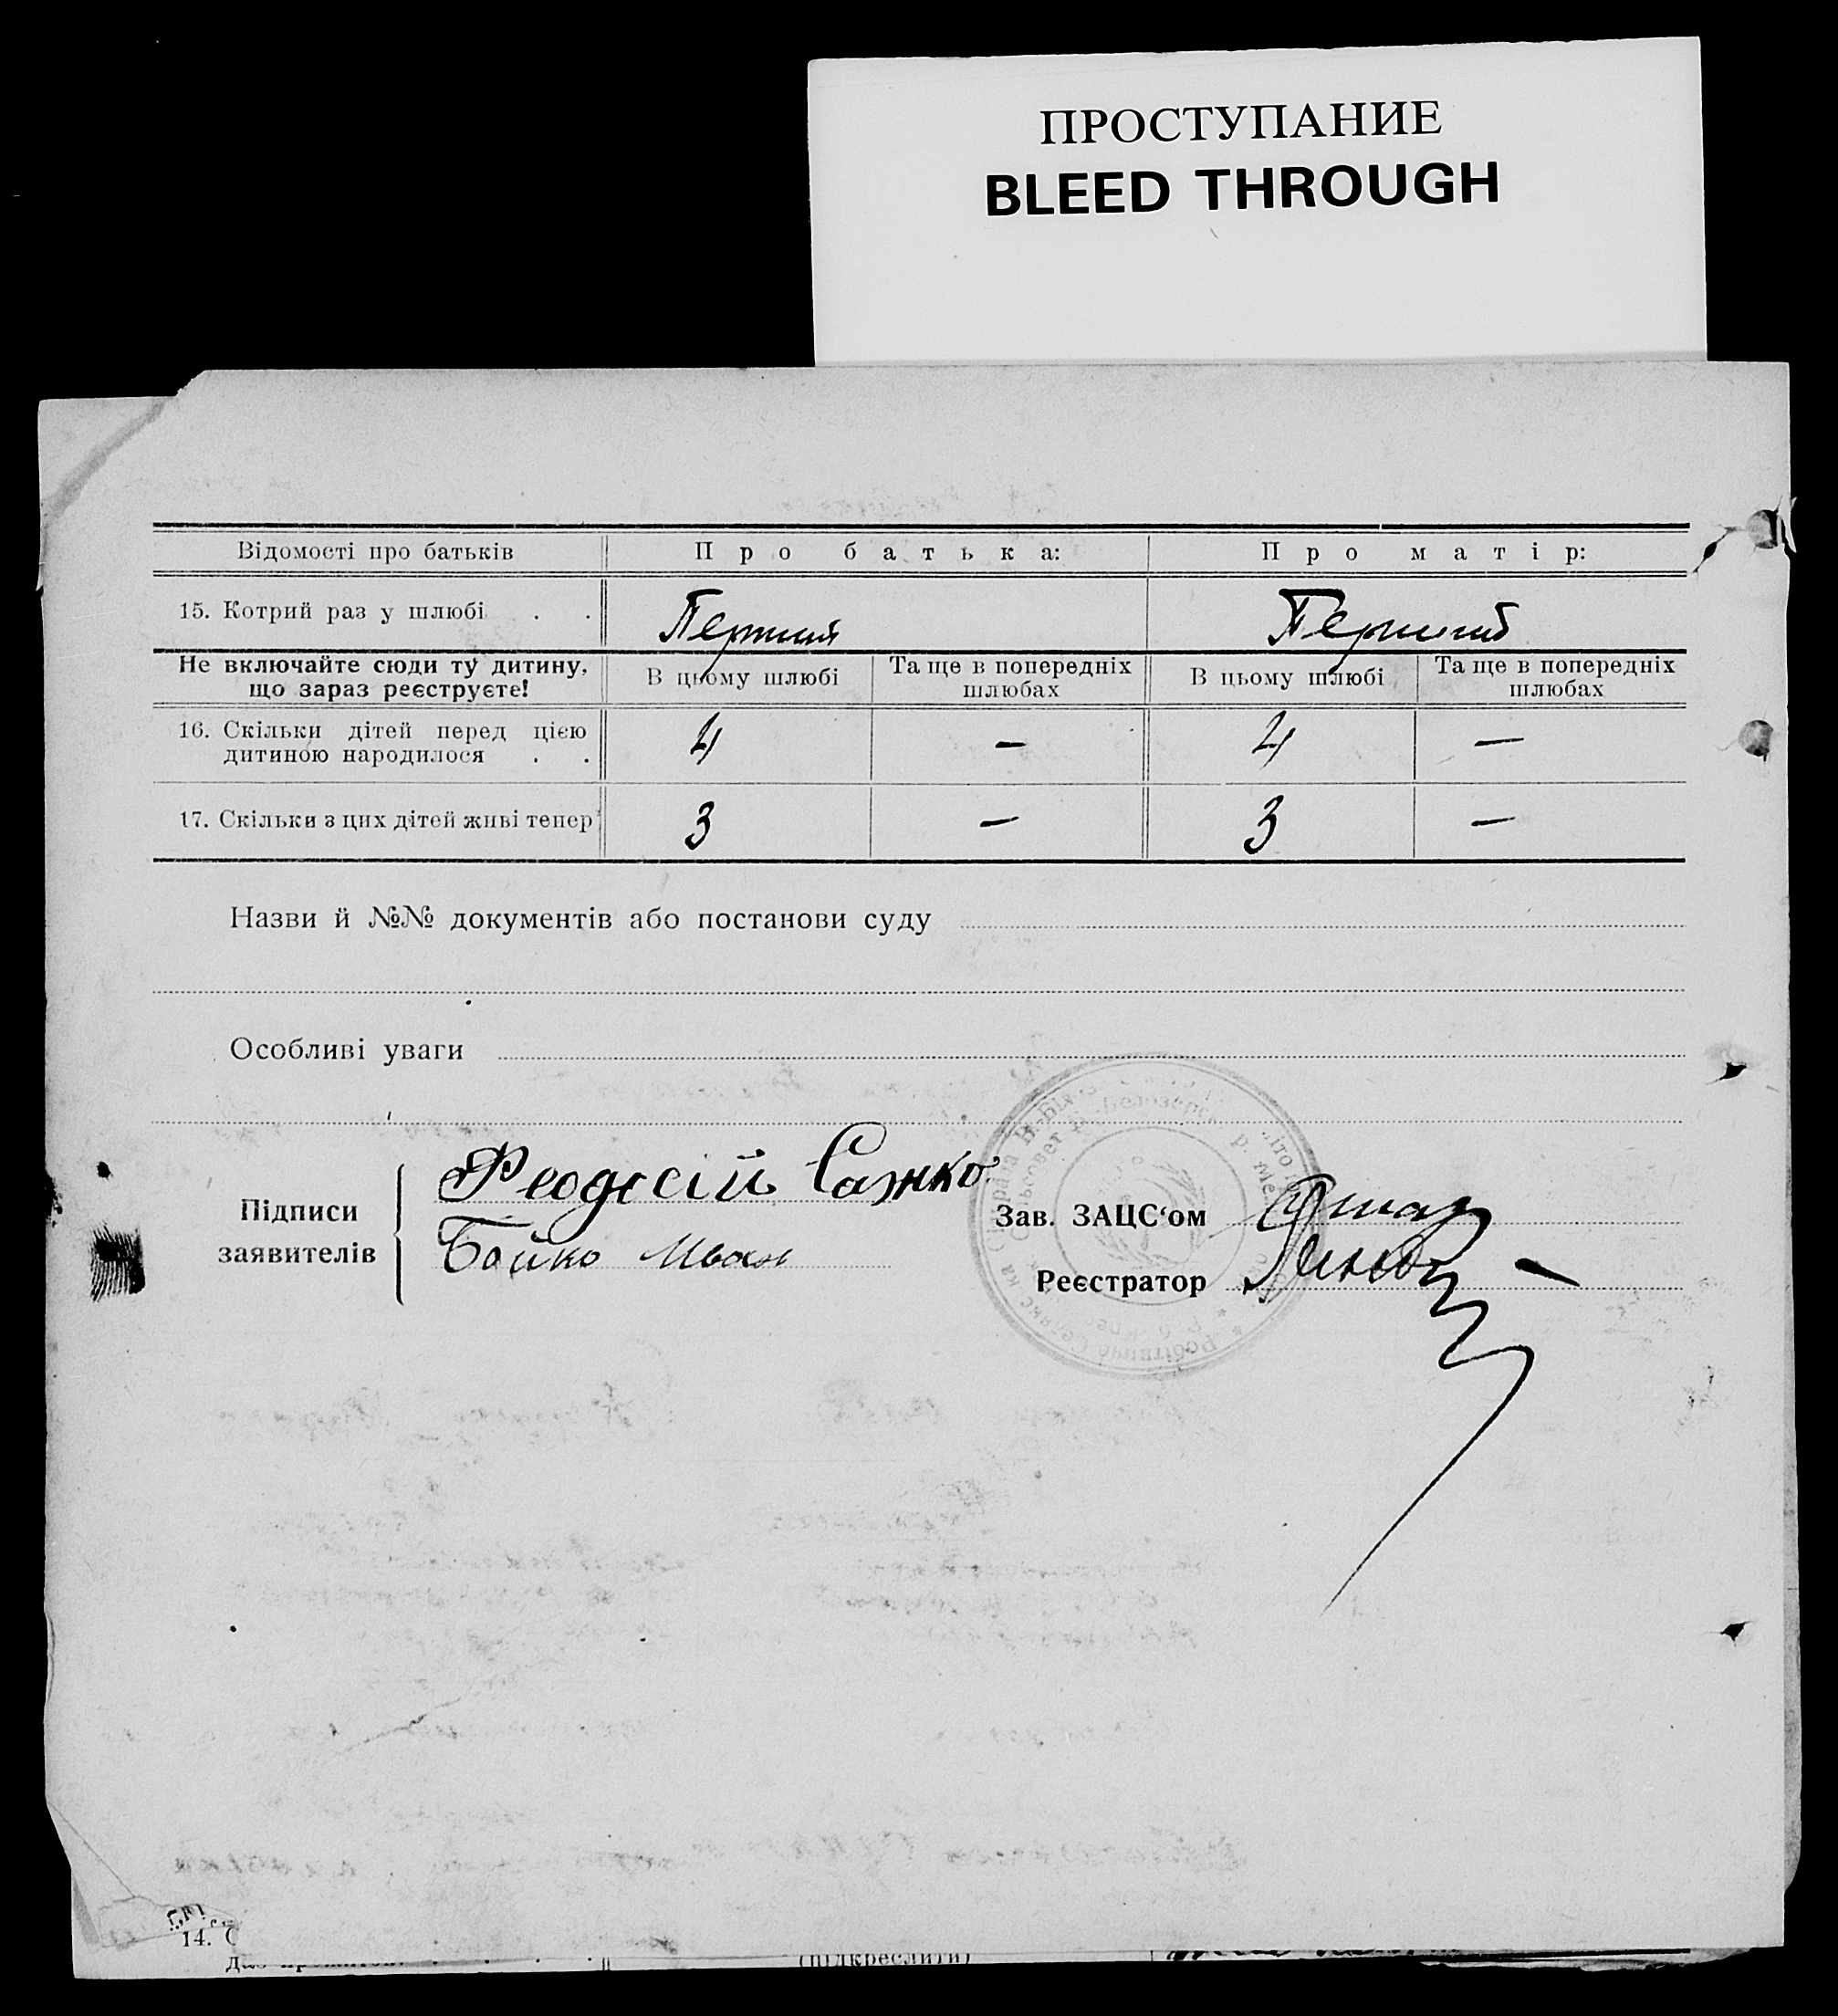 ПРОСТУПАНИЕ
BLEED THROUGH
Відомості про батьків Про батька: Про матір:
15. Котрий раз у шлюбі . . Перший Перший
Не включайте сюди ту дитину, що зараз реєструєте! В цьому шлюбі Та ще в попередніх шлюбах В цьому шлюбі Та ще в попередніх шлюбах
16. Скільки дітей перед цією
дитиною народилося . . 4 — 4 —
17. Скільки з цих дітей живі тепер 3 — 3 —
Назви й №№ документів або постанови суду
Особливі уваги
Підписи заявителів
Феодосій Сажко
Бойко Иван
Зав. ЗАЦС‘ом
Реєстратор
14. С
(підкреслити)